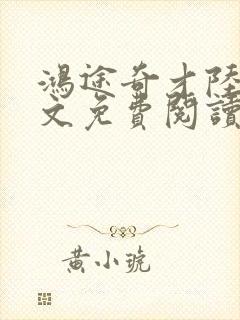 鴻途奇才陸
文免費閱讀
黃小琥